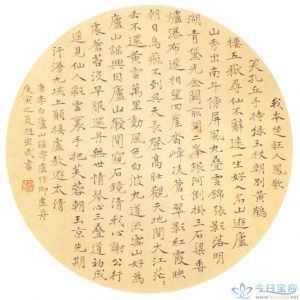 我本楚狂人鳳歌
笑孔丘手持綠玉杖朝別黃鶴
樓五嶽尋仙不辭遠一生好入名山遊廬
山秀出南斗傍屏風九疊雲錦張影落明
湖青黛光金闕前開二峯長銀河倒掛三石梁香
爐瀑布遙相望迴崖沓嶂凌蒼蒼翠影紅霞映
朝日鳥飛不到吳天長登高壯觀天地間大江茫茫
去不還黃雲萬里動風色白波九道流雪山好為
廬山謠興因廬山發閒窺石鏡清我心謝公行
處蒼苔沒早服還丹無世情琴心三疊道初成
遙見仙人彩雲裏手把芙蓉朝玉京先期
汗漫九垓上願接盧敖遊太清
唐李白廬山謠寄盧侍御虛舟
庚寅之夏趙 書
今日宝库